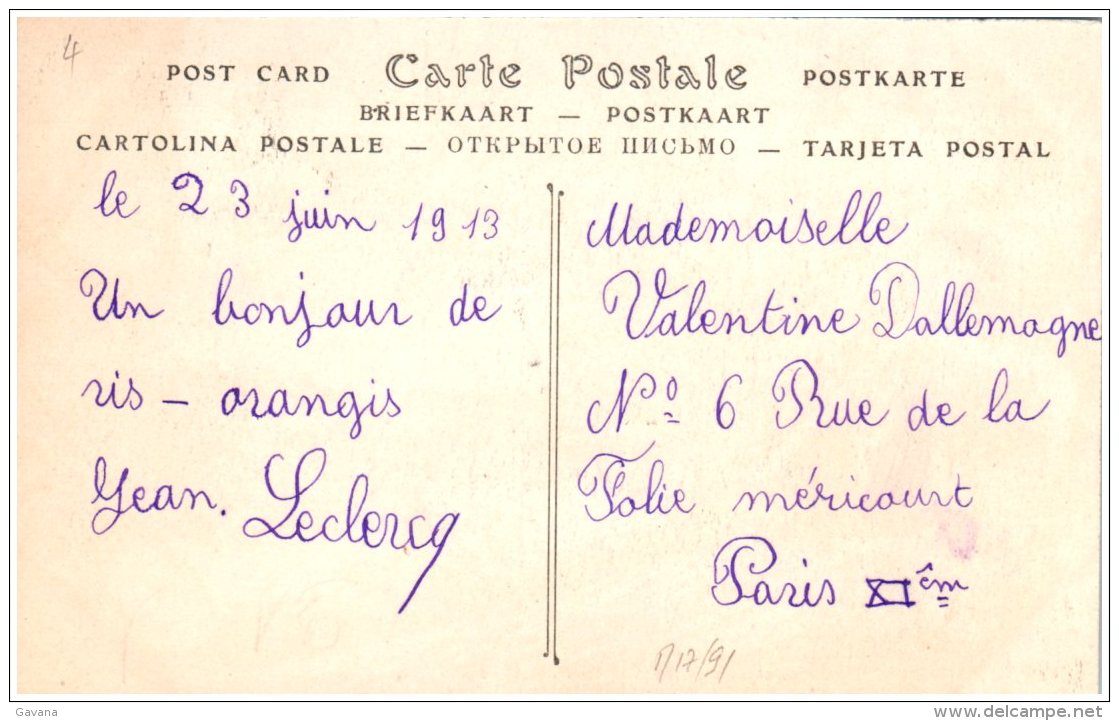 4
POST CARD Carte Postale POSTKARTE
BRIEFKAART — POSTKAART
CARTOLINA POSTALE — ОТКРЫТОЕ ПИСЬМО — TARJETA POSTAL
le 23 juin 1913
Un bonjour de
ris - orangis
Jean. Leclercq
Mademoiselle
Valentine Dallemagne
Nº 6 Rue de la
Folie méricourt
Paris XIêm
17/91
Gavana
www.delcampe.net